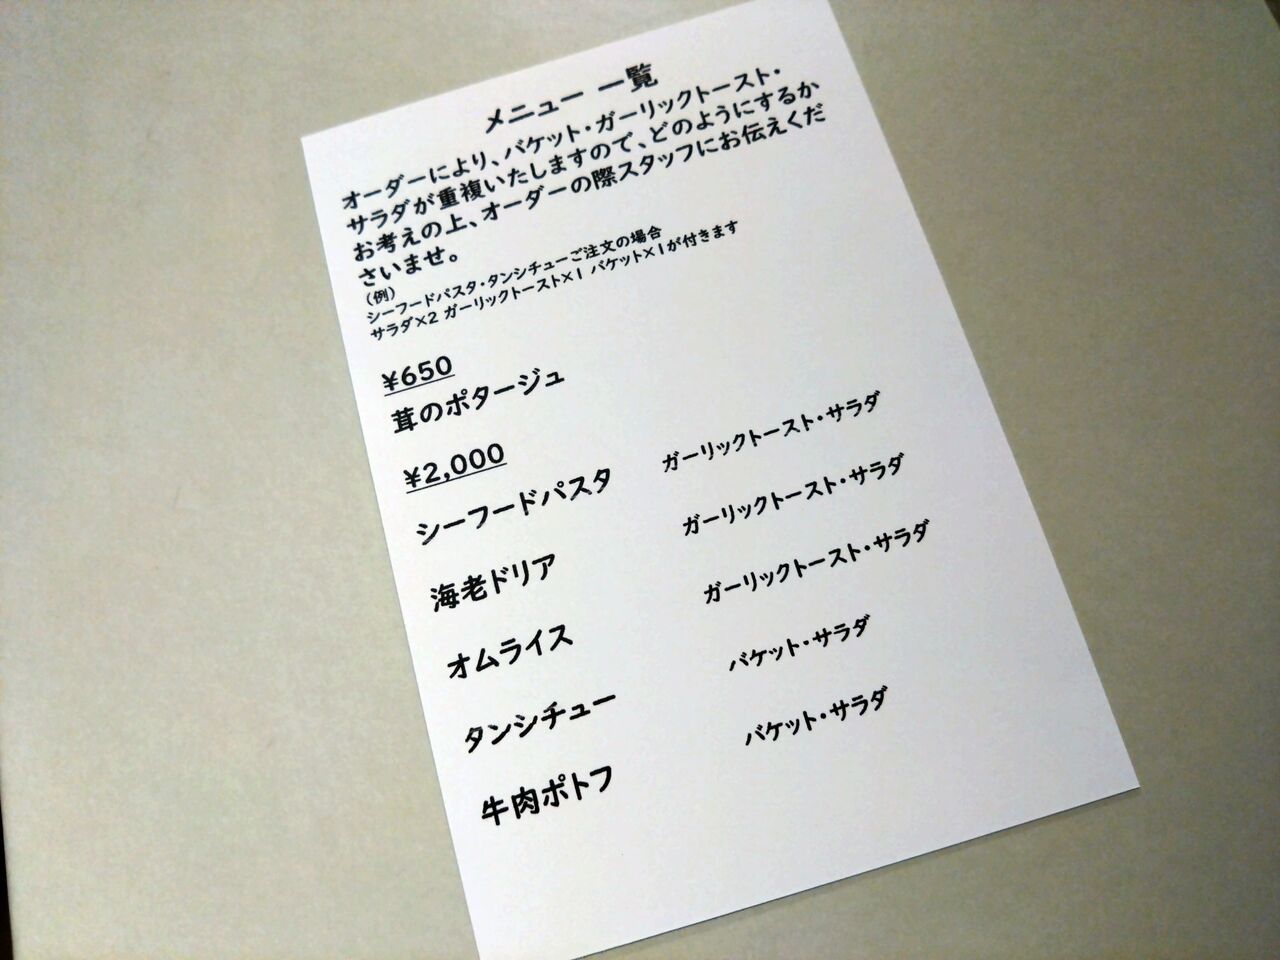 メニュー 一覧
オーダーにより、バケット・ガーリックトースト・
サラダが重複いたしますので、どのようにするか
お考えの上、オーダーの際スタッフにお伝えくだ
さいませ。
（例）
シーフードパスタ・タンシチューご注文の場合
サラダ×2 ガーリックトースト×1 バケット×1が付きます
¥650
茸のポタージュ
¥2,000
シーフードパスタ ガーリックトースト・サラダ
海老ドリア ガーリックトースト・サラダ
オムライス ガーリックトースト・サラダ
タンシチュー バケット・サラダ
牛肉ポトフ バケット・サラダ